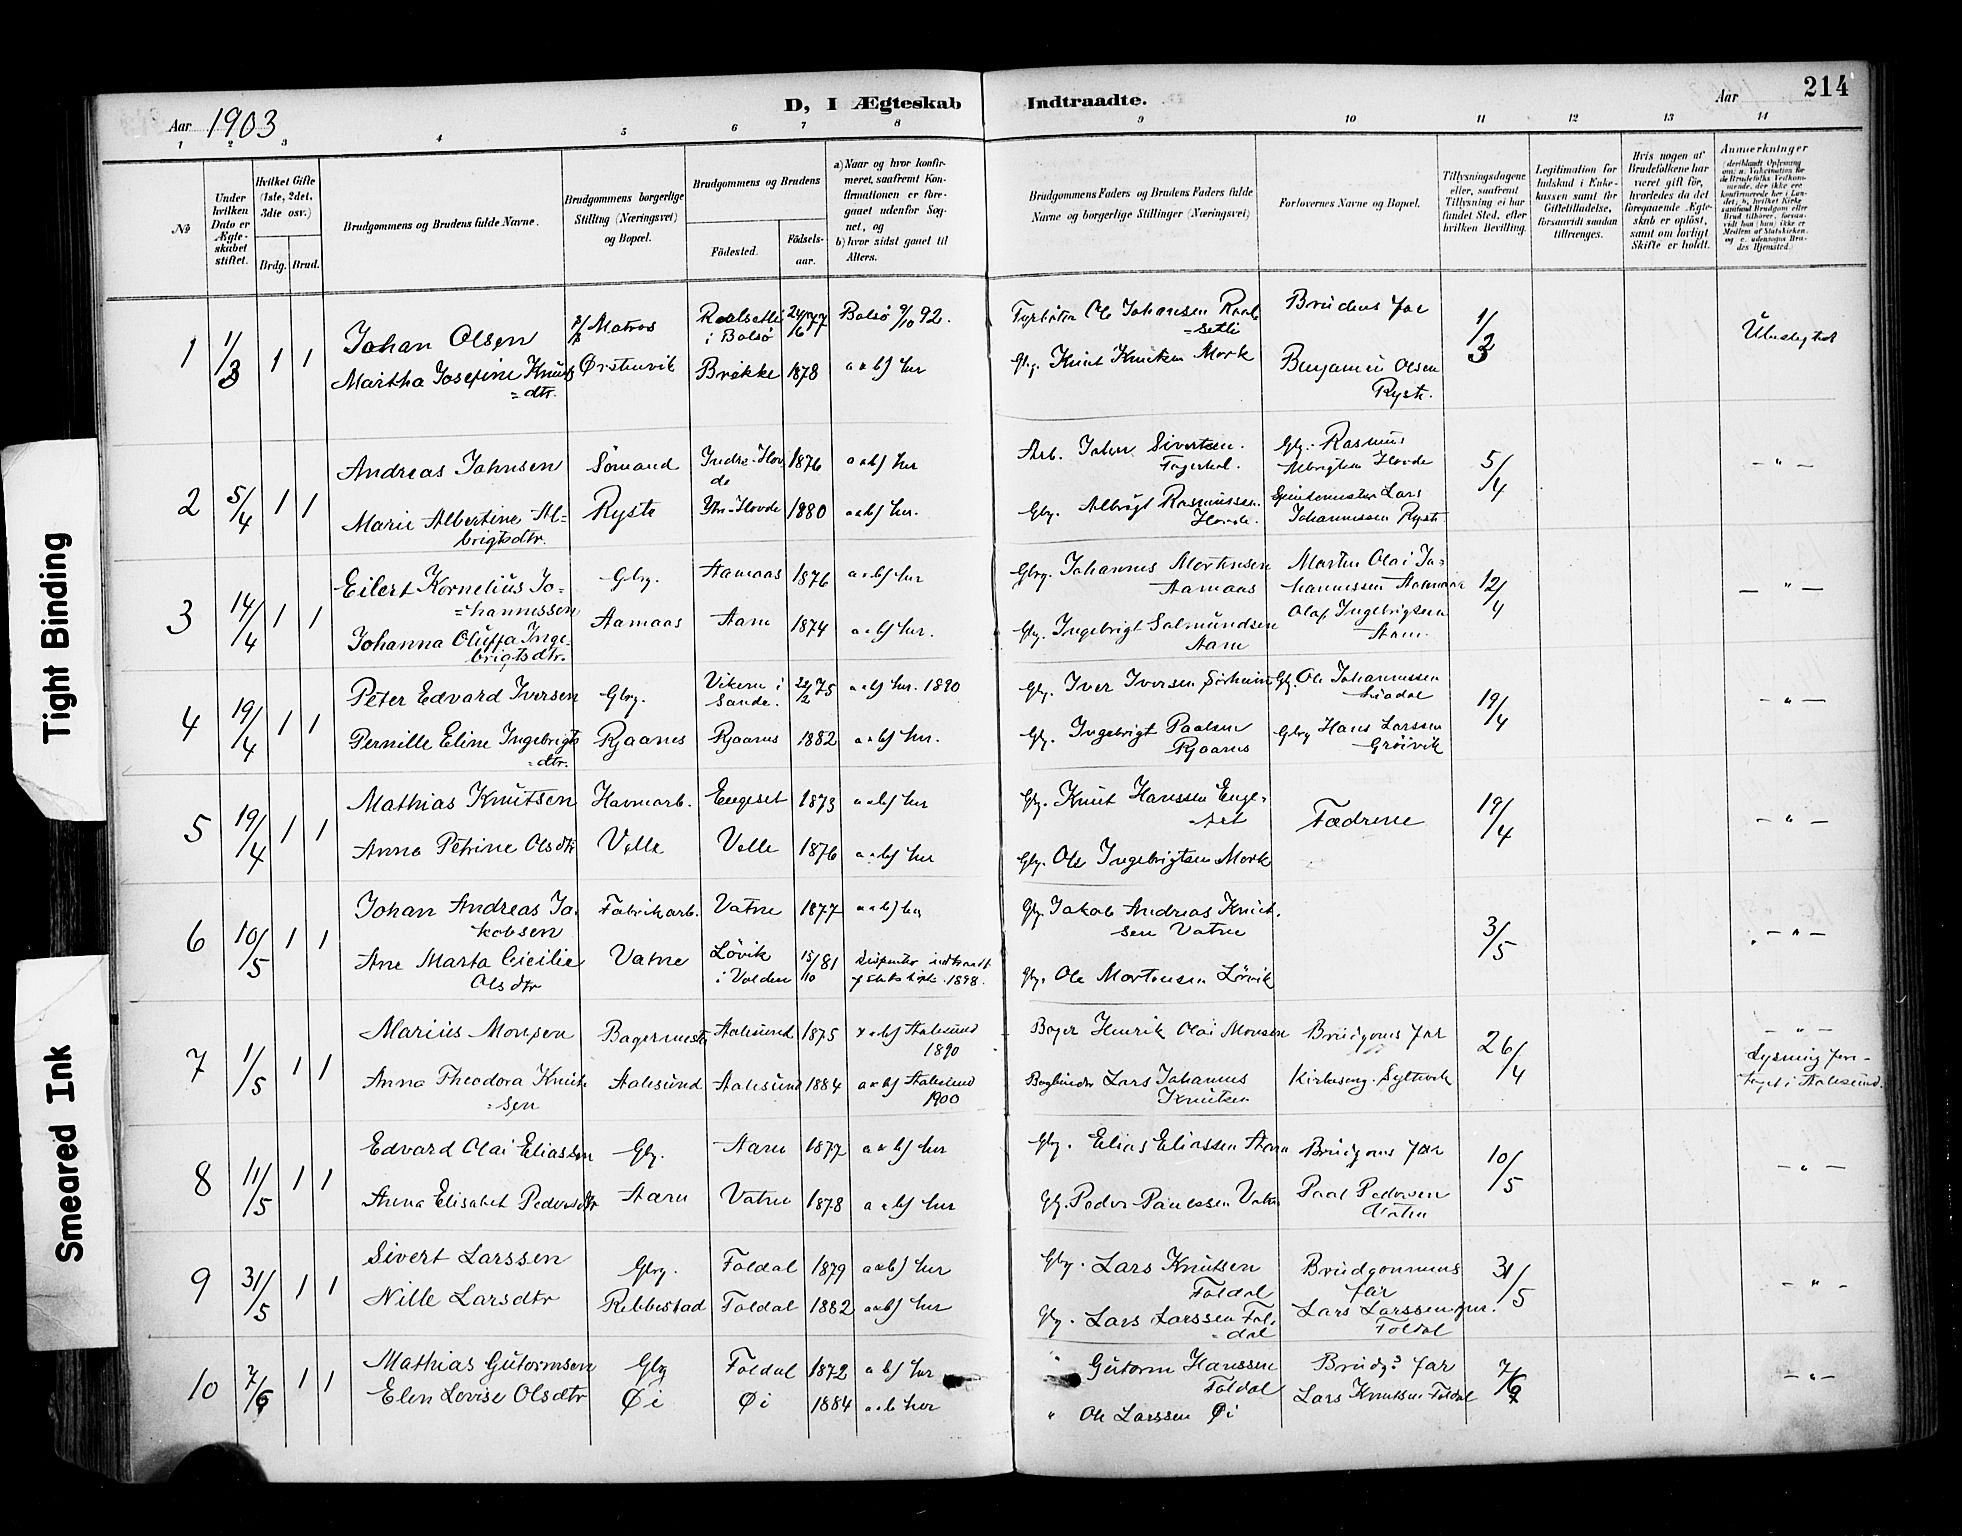 214
D, I Ægteskab Indtraadte.
Aar 1903. Aar
1 2 3 4 5 6 7 8 9 10 11 12 13 14
No
Under hvilken Dato er Ægteskabet stiftet.
Hvilket Gifte (1ste, 2det, 3die osv.)
Brdg. Brud.
Brudgommens og Brudens fulde Navne.
Brudgommens borgerlige Stilling (Næringsvei) og Bopæl.
Brudgommens og Brudens
Födested. Födsels-aar.
a) Naar og hvor konfirmeret, saafremt Konfirmationen er foregaaet udenfor Sognet, og
b) hvor sidst gaaet til Alters.
Brudgommens Faders og Brudens Faders fulde Navne og borgerlige Stillinger (Næringsvei)
Forlovernes Navne og Bopæl.
Tillysningsdagene eller, saafremt Tillysning ei har fundet Sted, efter hvilken Bevilling.
Legitimation for Indskud i Enkekassen samt for Giftetilladelse, forsaavidt saadan tiltrænges.
Hvis nogen af Brudefolkene har været gift för, hvordedes da det foregaaende Ægteskab er oplöst, samt om lovligt Skifte er holdt.
Anmerkninger
1 1/3 1 1
Johan Olsen
Matros
i Bolsø
Bolsø 9/10 92.
Johansen
Brudens far
Martha Josefine Knuts=dtr.
Ørstenvik
Brekke 1878 a & b) her
Gbg. Knut Knutsen Mork
Benjamin Olsen Ryste.
2 5/4 1 1
Andreas Johnsen
Sømand
Indre-Hovde 1876 a & b) her
Arb. John Sivertsen.
Gbg. Rasmus Albrigtsen Hovde
5/4
– " –
Marie Albertine Albrigtsdtr.
Ryste
Ytre-Hovde 1880 a & b) her.
Gbg. Albrigt Rasmussen Hovde.
Lars Johannessen Ryste
3 14/4 1 1
Eilert Kornelius Johannessen
Gbg.
Aamaas 1876 a & b) her
Gbg. Johannes Mortensen Aamaas
Morten Olai Johannessen Aamaas
12/4
– " –
Johanna Oluffa Ingebrigtsdtr.
Aamaas
Aam 1874 a & b) her.
Gbg. Ingebrigt Salmundsen Aam
Olaf Ingebrigtsen Aam.
4 19/4 1 1
Peter Edvard Iversen
Gbg.
Viken i Sande. 24/2 75 a & b) her. 1890
Gbg. Iver Iversen Sørheim
Gbg. Ole Johannessen
19/4
– " –
Pernille Eline Ingebrigtsdtr.
Rjaanes
Rjaanes 1882 a & b) her.
Gbg. Ingebrigt Paalsen Rjaanes
Gbg Hans Larssen Grøivik
5 19/4 1 1
Mathias Knutsen
Havnearb.
Engeset 1873 a & b) her
Gbg. Knut Hanssen Engeset
Fædrene
19/4
– " –
Anne Petrine Olsdtr
Velle
Velle 1876 a & b) her
Gbg. Ole Ingebrigtsen Mork
6 10/5 1 1
Johan Andreas Jakobsen
Fabrikarb.
Vatne 1877 a & b) her
Gbg. Jakob Andreas Knutsen Vatne
3/5
– " –
Ane Marta Cecilie Olsdtr
Vatne
Løvik i Volden 15/10 81
1898.
Gbg. Ole Mortensen Løvik
7 1/5 1 1
Marius Monsen
Bagermester
Aalesund 1875 a & b) Aalesund 1890
Bager Henrik Olai Monsen
Brudgoms far
26/4
– " –
Lysning foretaget i Aalesund.
Anna Theodora Knutsen
Aalesund
Aalesund 1884 a & b) Aalesund 1900
Bogbinder Lars Johannes Knutsen
Kirkesang. Syltevik
8 11/5 1 1
Edvard Olai Eliassen
Gbg.
Aam 1877 a & b) her
Gbg. Elias Eliassen Aam
Brudgoms far
10/5
– " –
Anna Elisabet Pedersdtr
Aam
Vatne 1878 a & b) her
Gbg. Peder Paulssen Vatne
Paal Pedersen Vatne
9 31/5 1 1
Sivert Larssen
Gbg.
Foldal 1879 a & b) her
Gbg. Lars Knutsen Foldal
Brudgommens far
31/5
– " –
Nille Larsdtr
Rebbestad
Foldal 1882 a & b) her
Gbg. Lars Larssen Foldal
Lars Larssen jnr. Foldal
10 7/6 1 1
Mathias Gutormsen
Gbg
Foldal 1872 a & b) her
" Gutorm Hanssen Foldal
Brudg.s far
7/6
– " –
Elen Lovise Olsdtr
Øi
Øi 1884 a & b her
" Ole Larssen Øi
Lars Knutsen Foldal
Tight Binding
Smeared Ink